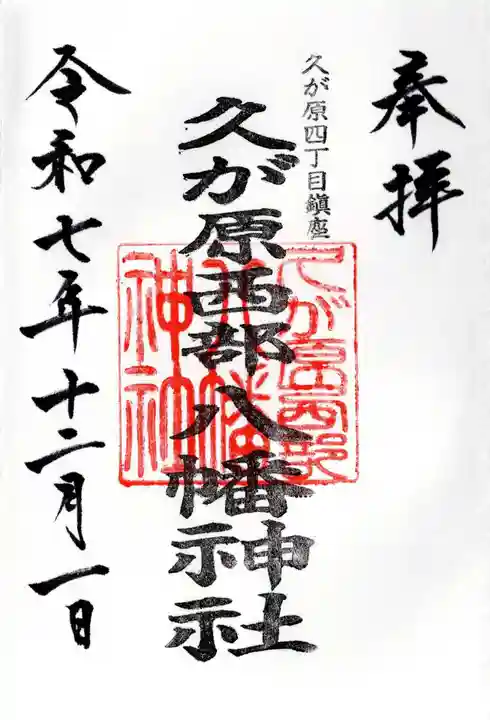 奉拝
久が原四丁目鎮座
久が原西部八幡神社
久が原西部
八幡
神社
令和七年十二月一日